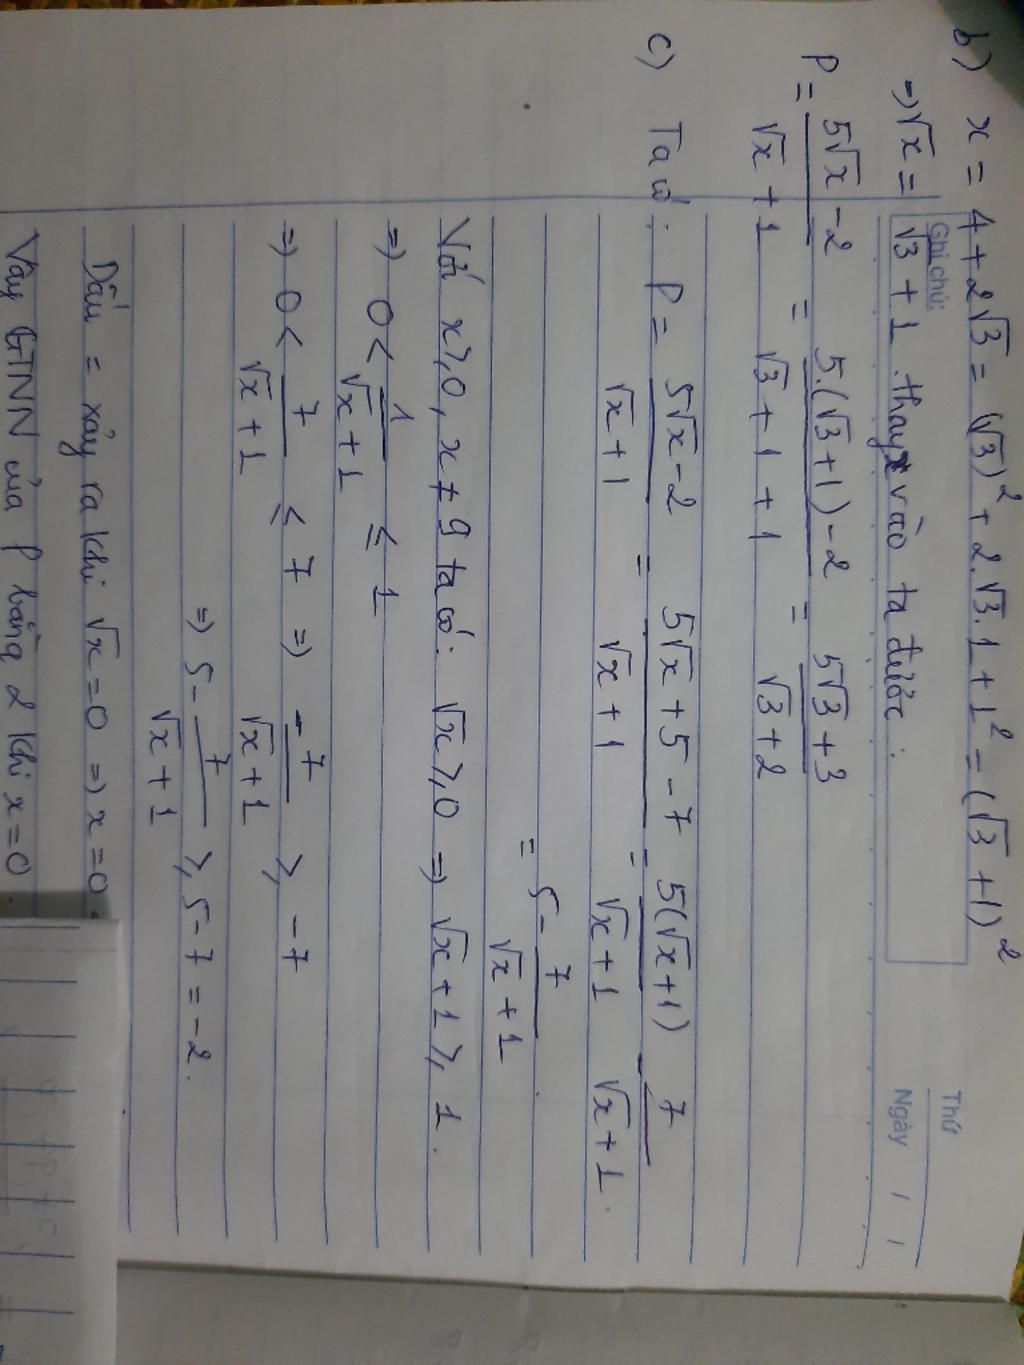 Thứ
Ngày / /
Ghi chú:
b) x = 4 + 2√3 = (√3)² + 2.√3.1 + 1² = (√3 + 1)²
⇒ √x = √3 + 1. thay x vào ta được :
P = (5√x - 2)/(√x + 1) = (5.(√3 + 1) - 2)/(√3 + 1 + 1) = (5√3 + 3)/(√3 + 2)
c) Ta có: P = (5√x - 2)/(√x + 1) = (5√x + 5 - 7)/(√x + 1) = 5(√x + 1)/(√x + 1) 7/(√x + 1).
= 5 - 7/(√x + 1)
Với x ≥ 0, x ≠ 9 ta có: √x ≥ 0 ⇒ √x + 1 ≥ 1.
⇒ 0 < 1/(√x + 1) ≤ 1
⇒ 0 < 7/(√x + 1) ≤ 7 ⇒ -7/(√x + 1) ≥ -7
⇒ 5 - 7/(√x + 1) ≥ 5 - 7 = -2.
Dấu = xảy ra khi √x = 0 ⇒ x = 0
Vậy GTNN của P bằng 2 khi x = 0